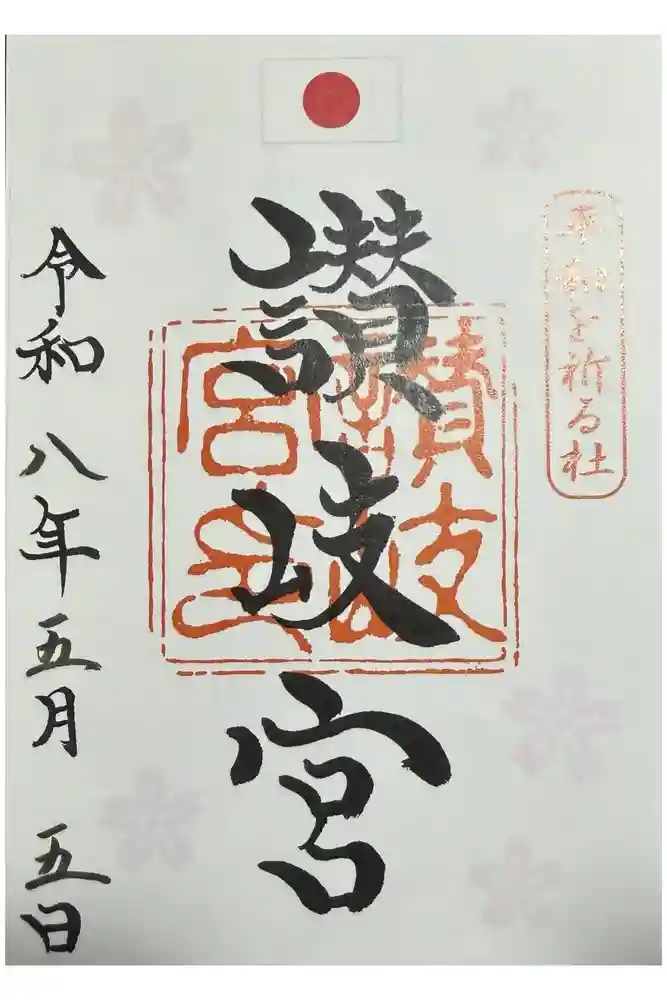 平和を祈る社
讃岐宮
讃岐
宮
令和八年五月五日